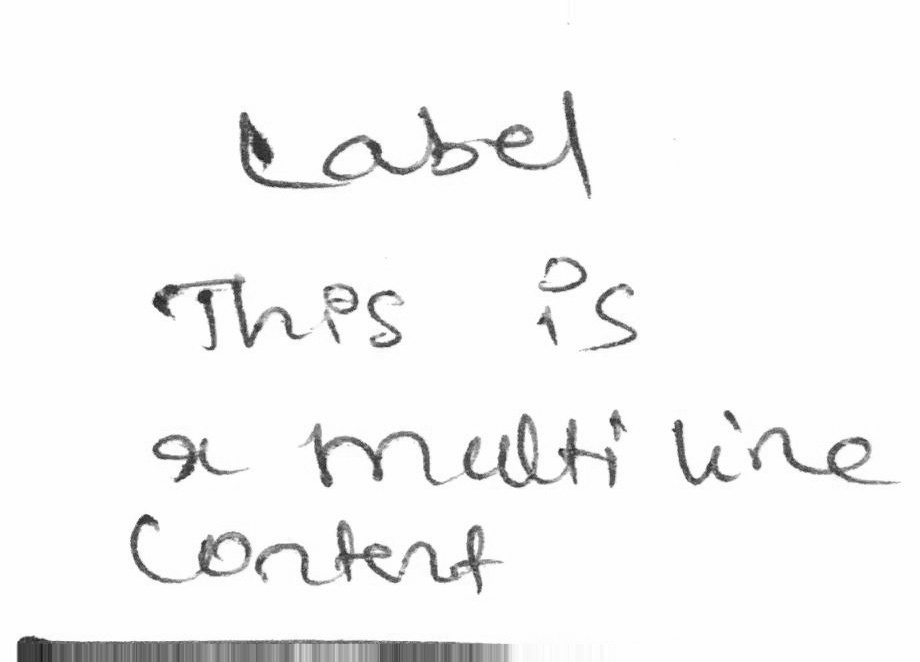 Label
This is
a multi line
Content